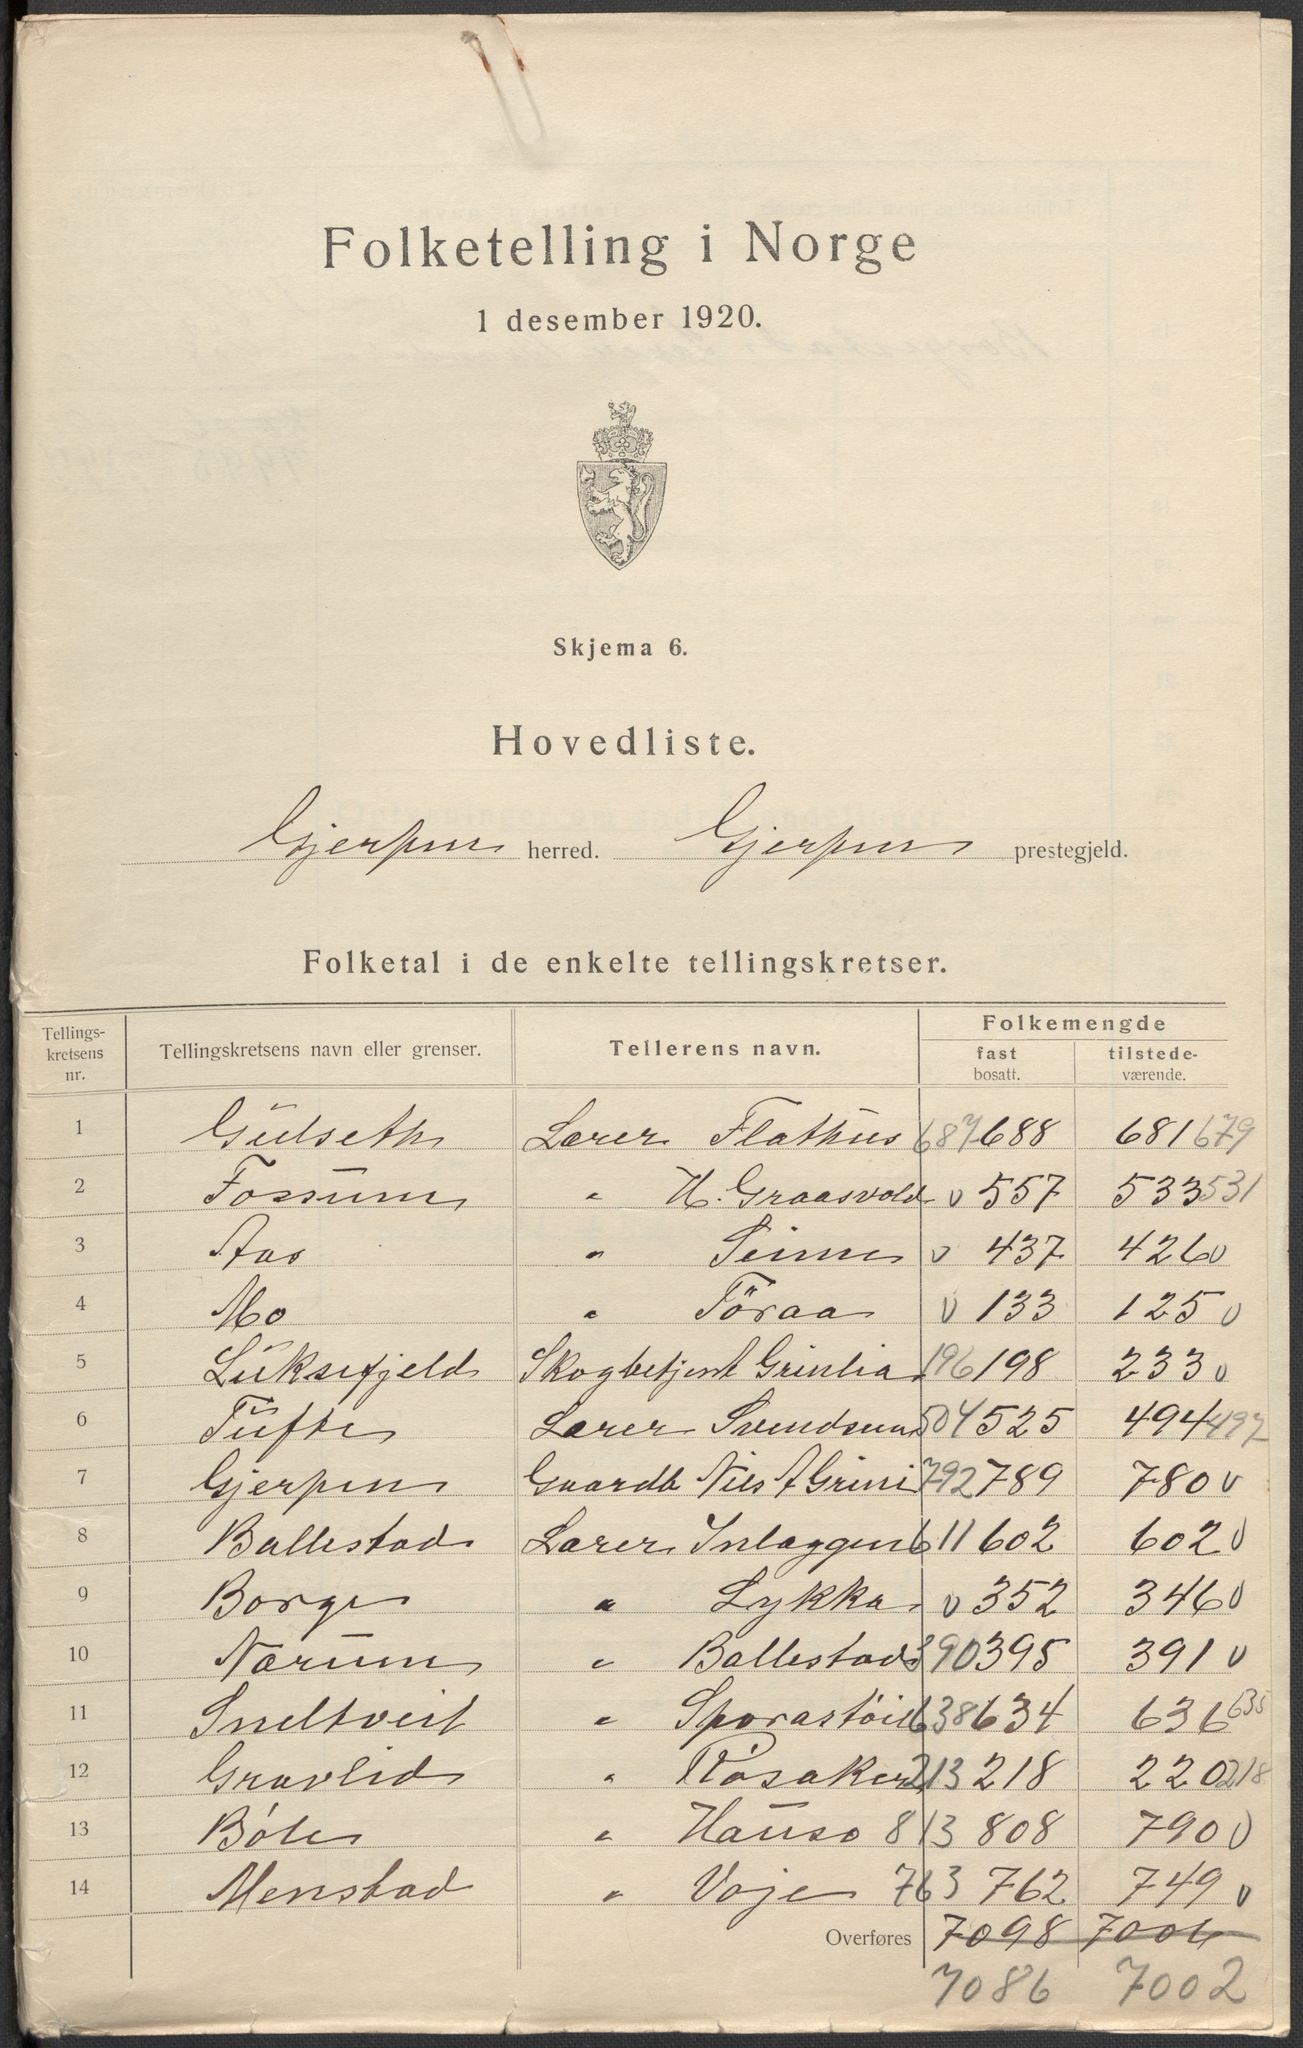 Folketelling i Norge
1 desember 1920.
Skjema 6.
Hovedliste.
Gjerpen herred. Gjerpen prestegjeld.
Folketal i de enkelte tellingskretser.
Tellings-kretsens nr. Tellingskretsens navn eller grenser. Tellerens navn. Folkemengde
fast bosatt. tilstede-værende.
1 Gulseth Lærer Flathus 687 688 681 679
2 Fossum " H. Graasvold v 557 533 531
3 Aas " v 437 426 v
4 Mo " Föraa v 133 125 v
5 Luksefjeld Skogbetjent Grinlia 196 198 233 v
6 Tufte Lærer Svendsen 504 525 494 497
7 Gjerpen Gaardb Nils A Grini 792 789 780 v
8 Ballestad Lærer 611 602 602 v
9 Borge " Lykka v 352 346 v
10 Nærum " Ballestad 390 395 391 v
11 Sneltveit " Sporastöil 638 634 636 635
12 Gravlid " Røsaker 213 218 220 218
13 Böle " 813 808 790 v
14 Menstad " Voje 763 762 749 v
Overføres 7098 7006
7086 7002